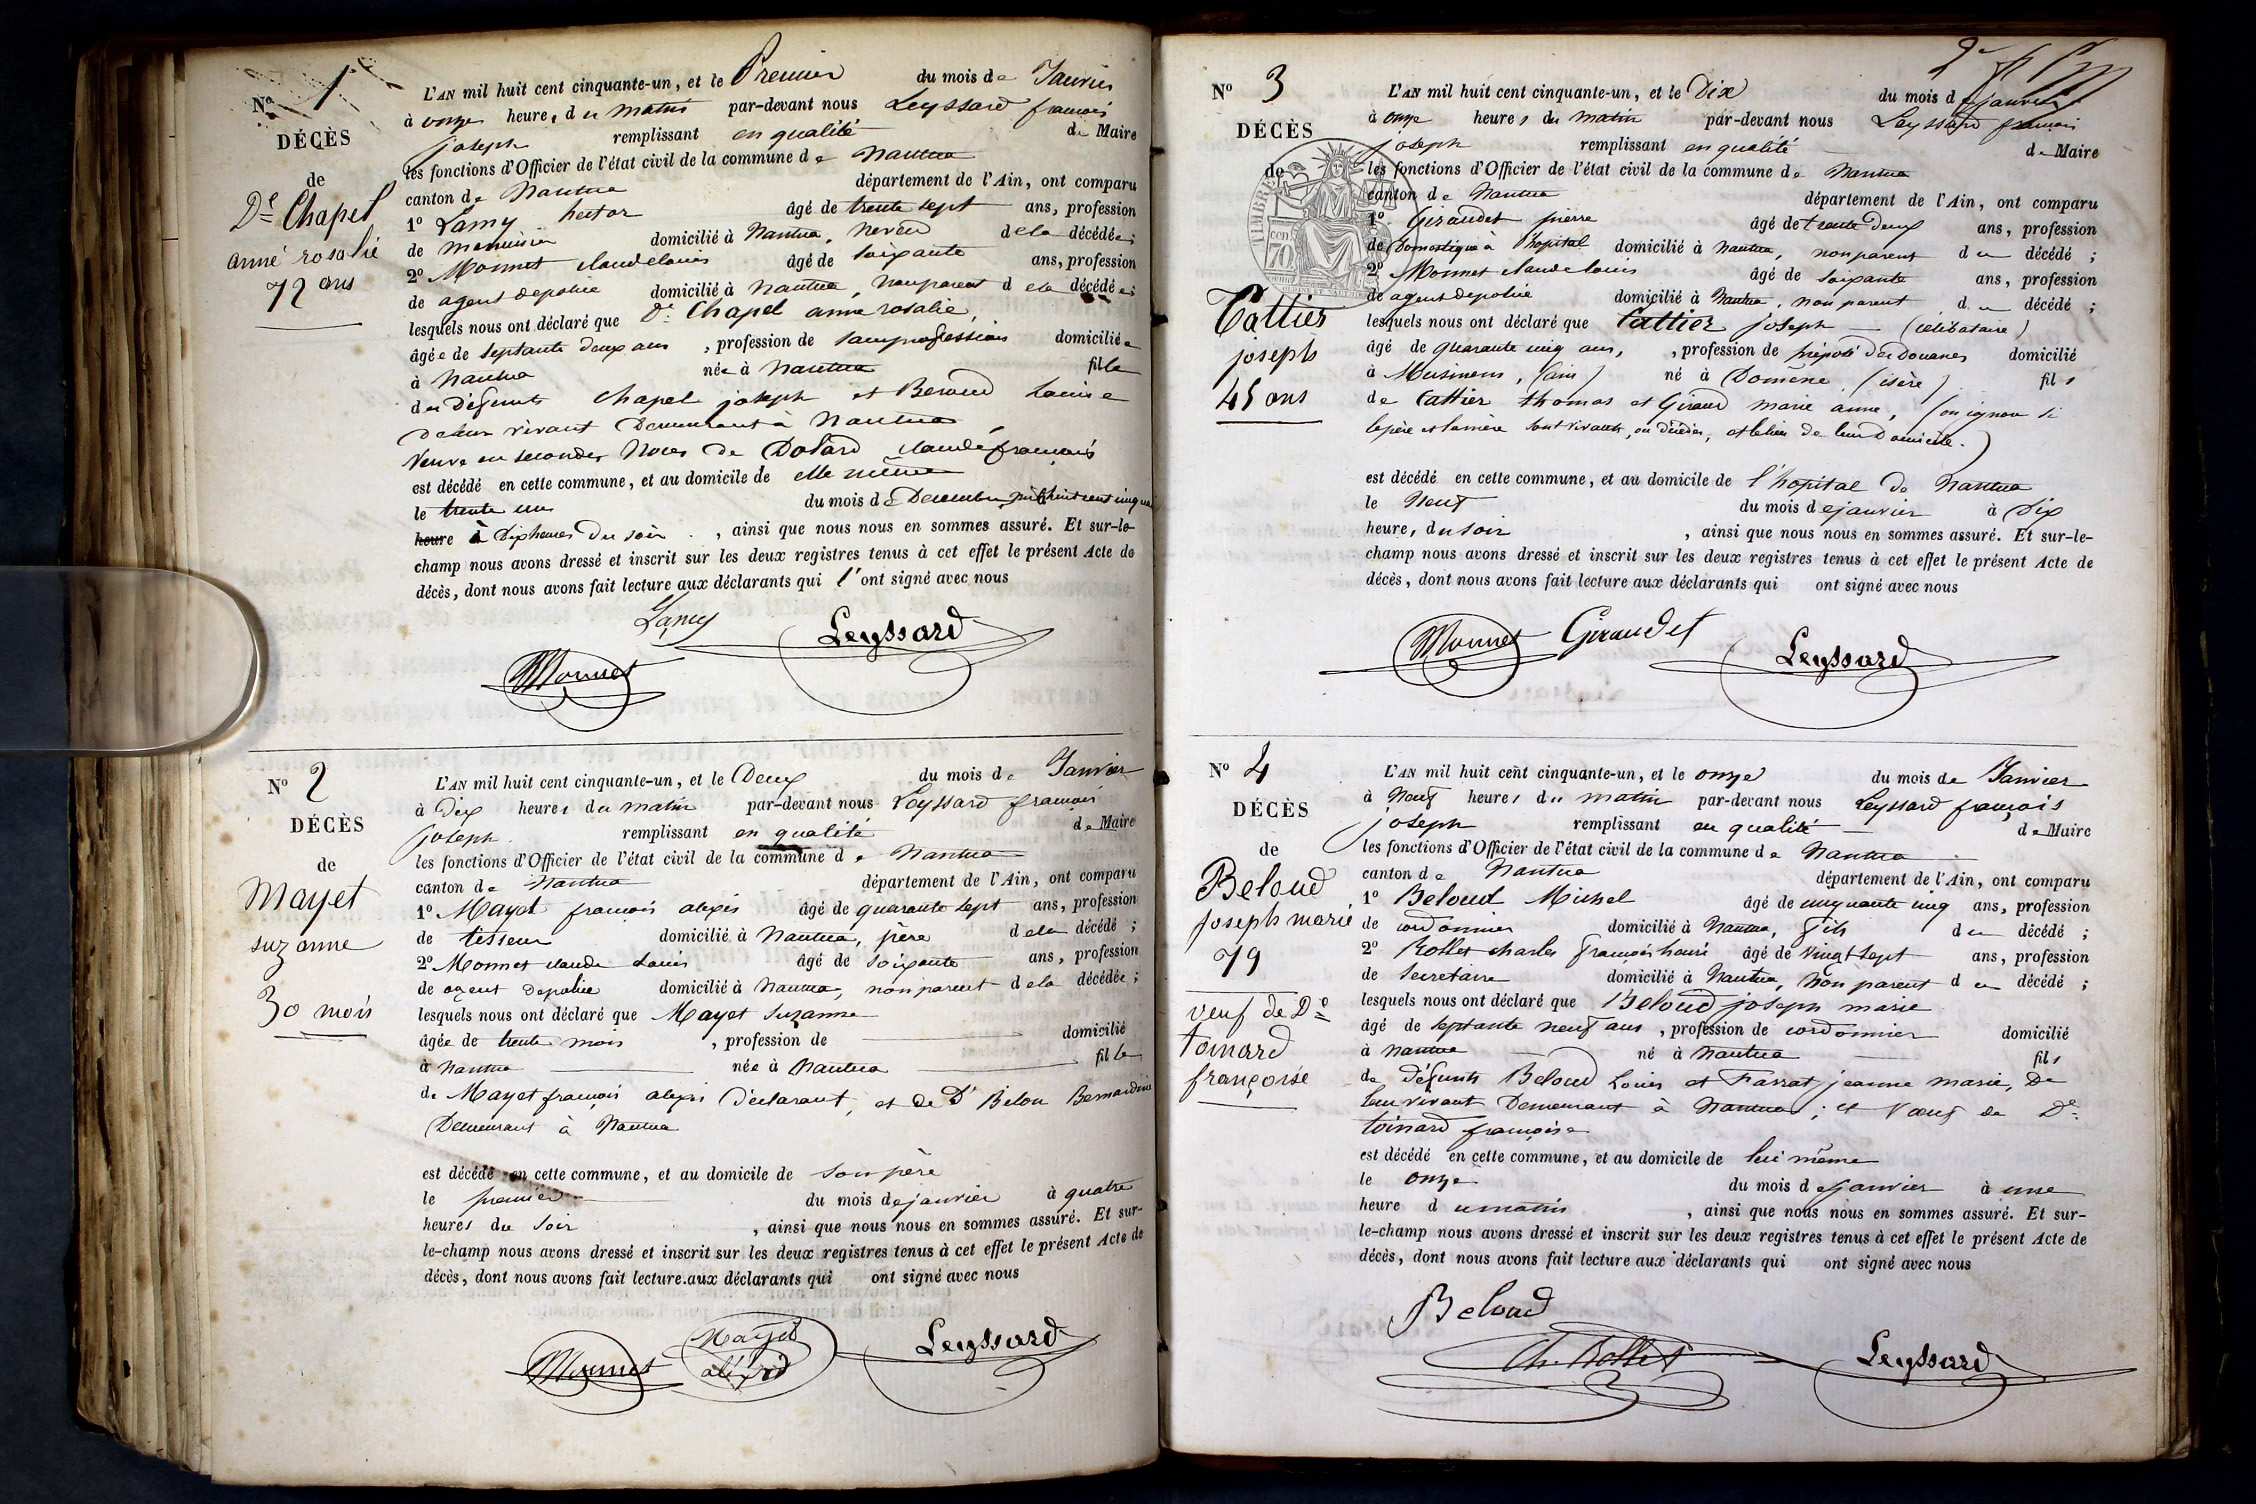 Nº 1
DÉCÈS
de
De Chapel
anne rosalie
72 ans
L'AN mil huit cent cinquante-un, et le Premier du mois de Janvier
à onze heures du matin par-devant nous Leyssard françois
joseph remplissant en qualité de Maire
les fonctions d'Officier de l'état civil de la commune de Nantua
canton de Nantua département de l'Ain, ont comparu
1º Lamy hector âgé de trente sept ans, profession
de menuisier domicilié à Nantua, neveu de la décédée;
2º Monnet claude Louis âgé de soixante ans, profession
de agent de police domicilié à Nantua, non parent de la décédée;
lesquels nous ont déclaré que De Chapel anne rosalie,
âgée de septante deux ans, profession de sans profession domiciliée
à Nantua née à Nantua fille
des défunts Chapel joseph et Beroud Louise
de leur vivant Demeurant à Nantua
Veuve en secondes Noces de Dotard claude françois
est décédé en cette commune, et au domicile de elle même
le trente un du mois de Decembre mil huit cent cinquante
heure à Dix heures du soir, ainsi que nous nous en sommes assuré. Et sur-le-
champ nous avons dressé et inscrit sur les deux registres tenus à cet effet le présent Acte de
décès, dont nous avons fait lecture aux déclarants qui l'ont signé avec nous
Lamy
Leyssard
Monnet
Nº 2
DÉCÈS
de
Mayet
suzanne
30 mois
L'AN mil huit cent cinquante-un, et le Deux du mois de Janvier
à Dix heures du matin par-devant nous Leyssard françois
joseph remplissant en qualité de Maire
les fonctions d'Officier de l'état civil de la commune de Nantua
canton de Nantua département de l'Ain, ont comparu
1º Mayet françois alexis âgé de quarante sept ans, profession
de tisseur domicilié à Nantua, père de la décédé;
2º Monnet claude Louis âgé de soixante ans, profession
de agent de police domicilié à Nantua, non parent de la décédée;
lesquels nous ont déclaré que Mayet Suzanne
âgée de trente mois, profession de domicilié
à Nantua née à Nantua fille
de Mayet françois alexis Déclarant, et de De Belon Bernardine
Demeurant à Nantua
est décédé en cette commune, et au domicile de son père
le premier du mois de janvier à quatre
heures du Soir, ainsi que nous nous en sommes assuré. Et sur-
le-champ nous avons dressé et inscrit sur les deux registres tenus à cet effet le présent Acte de
décès, dont nous avons fait lecture aux déclarants qui ont signé avec nous
Mayet
Leyssard
Monnet
Nº 3
DÉCÈS
de
TIMBRE
70
Cattier
joseph
45 ans
L'AN mil huit cent cinquante-un, et le Dix du mois de janvier
à onze heures du matin par-devant nous Leyssard françois
joseph remplissant en qualité de Maire
les fonctions d'Officier de l'état civil de la commune de Nantua
canton de Nantua département de l'Ain, ont comparu
1º Giraudet pierre âgé de trente Deux ans, profession
de Domestique à l'hopital domicilié à Nantua, non parent du décédé;
2º Monnet claude Louis âgé de Soixante ans, profession
de agent de police domicilié à Nantua, non parent du décédé;
lesquels nous ont déclaré que Cattier joseph (célibataire)
âgé de quarante cinq ans, profession de préposé des Douanes domicilié
à Musinens, (ain) né à Domène (isère) fils
de Cattier thomas et Giraud marie anne, (on ignore si
le père et la mère sont vivants, ou décédés, et le lieu de leur Domicile.)
est décédé en cette commune, et au domicile de l'hopital de Nantua
le Neuf du mois de janvier à Dix
heures du soir, ainsi que nous nous en sommes assuré. Et sur-le-
champ nous avons dressé et inscrit sur les deux registres tenus à cet effet le présent Acte de
décès, dont nous avons fait lecture aux déclarants qui ont signé avec nous
Monnet Giraudet
Leyssard
Nº 4
DÉCÈS
de
Beloud
joseph marie
79
veuf de De
toinard
françoise
L'AN mil huit cent cinquante-un, et le onze du mois de Janvier
à Neuf heures du matin par-devant nous Leyssard françois
joseph remplissant en qualité de Maire
les fonctions d'Officier de l'état civil de la commune de Nantua
canton de Nantua département de l'Ain, ont comparu
1º Beloud Michel âgé de cinquante cinq ans, profession
de cordonnier domicilié à Nantua, fils du décédé;
2º Rollet charles françois henri âgé de vingt sept ans, profession
de Secretaire domicilié à Nantua, Non parent du décédé;
lesquels nous ont déclaré que Beloud joseph marie
âgé de septante neuf ans, profession de cordonnier domicilié
à Nantua né à Nantua fils
de défunts Beloud Louis et Farrat jeanne marie, De
leur vivant Demeurant à Nantua; et Veuf de De
toinard françoise
est décédé en cette commune, et au domicile de lui même
le onze du mois de janvier à une
heure du matin, ainsi que nous nous en sommes assuré. Et sur-
le-champ nous avons dressé et inscrit sur les deux registres tenus à cet effet le présent Acte de
décès, dont nous avons fait lecture aux déclarants qui ont signé avec nous
Beloud
Ch. Rollet
Leyssard